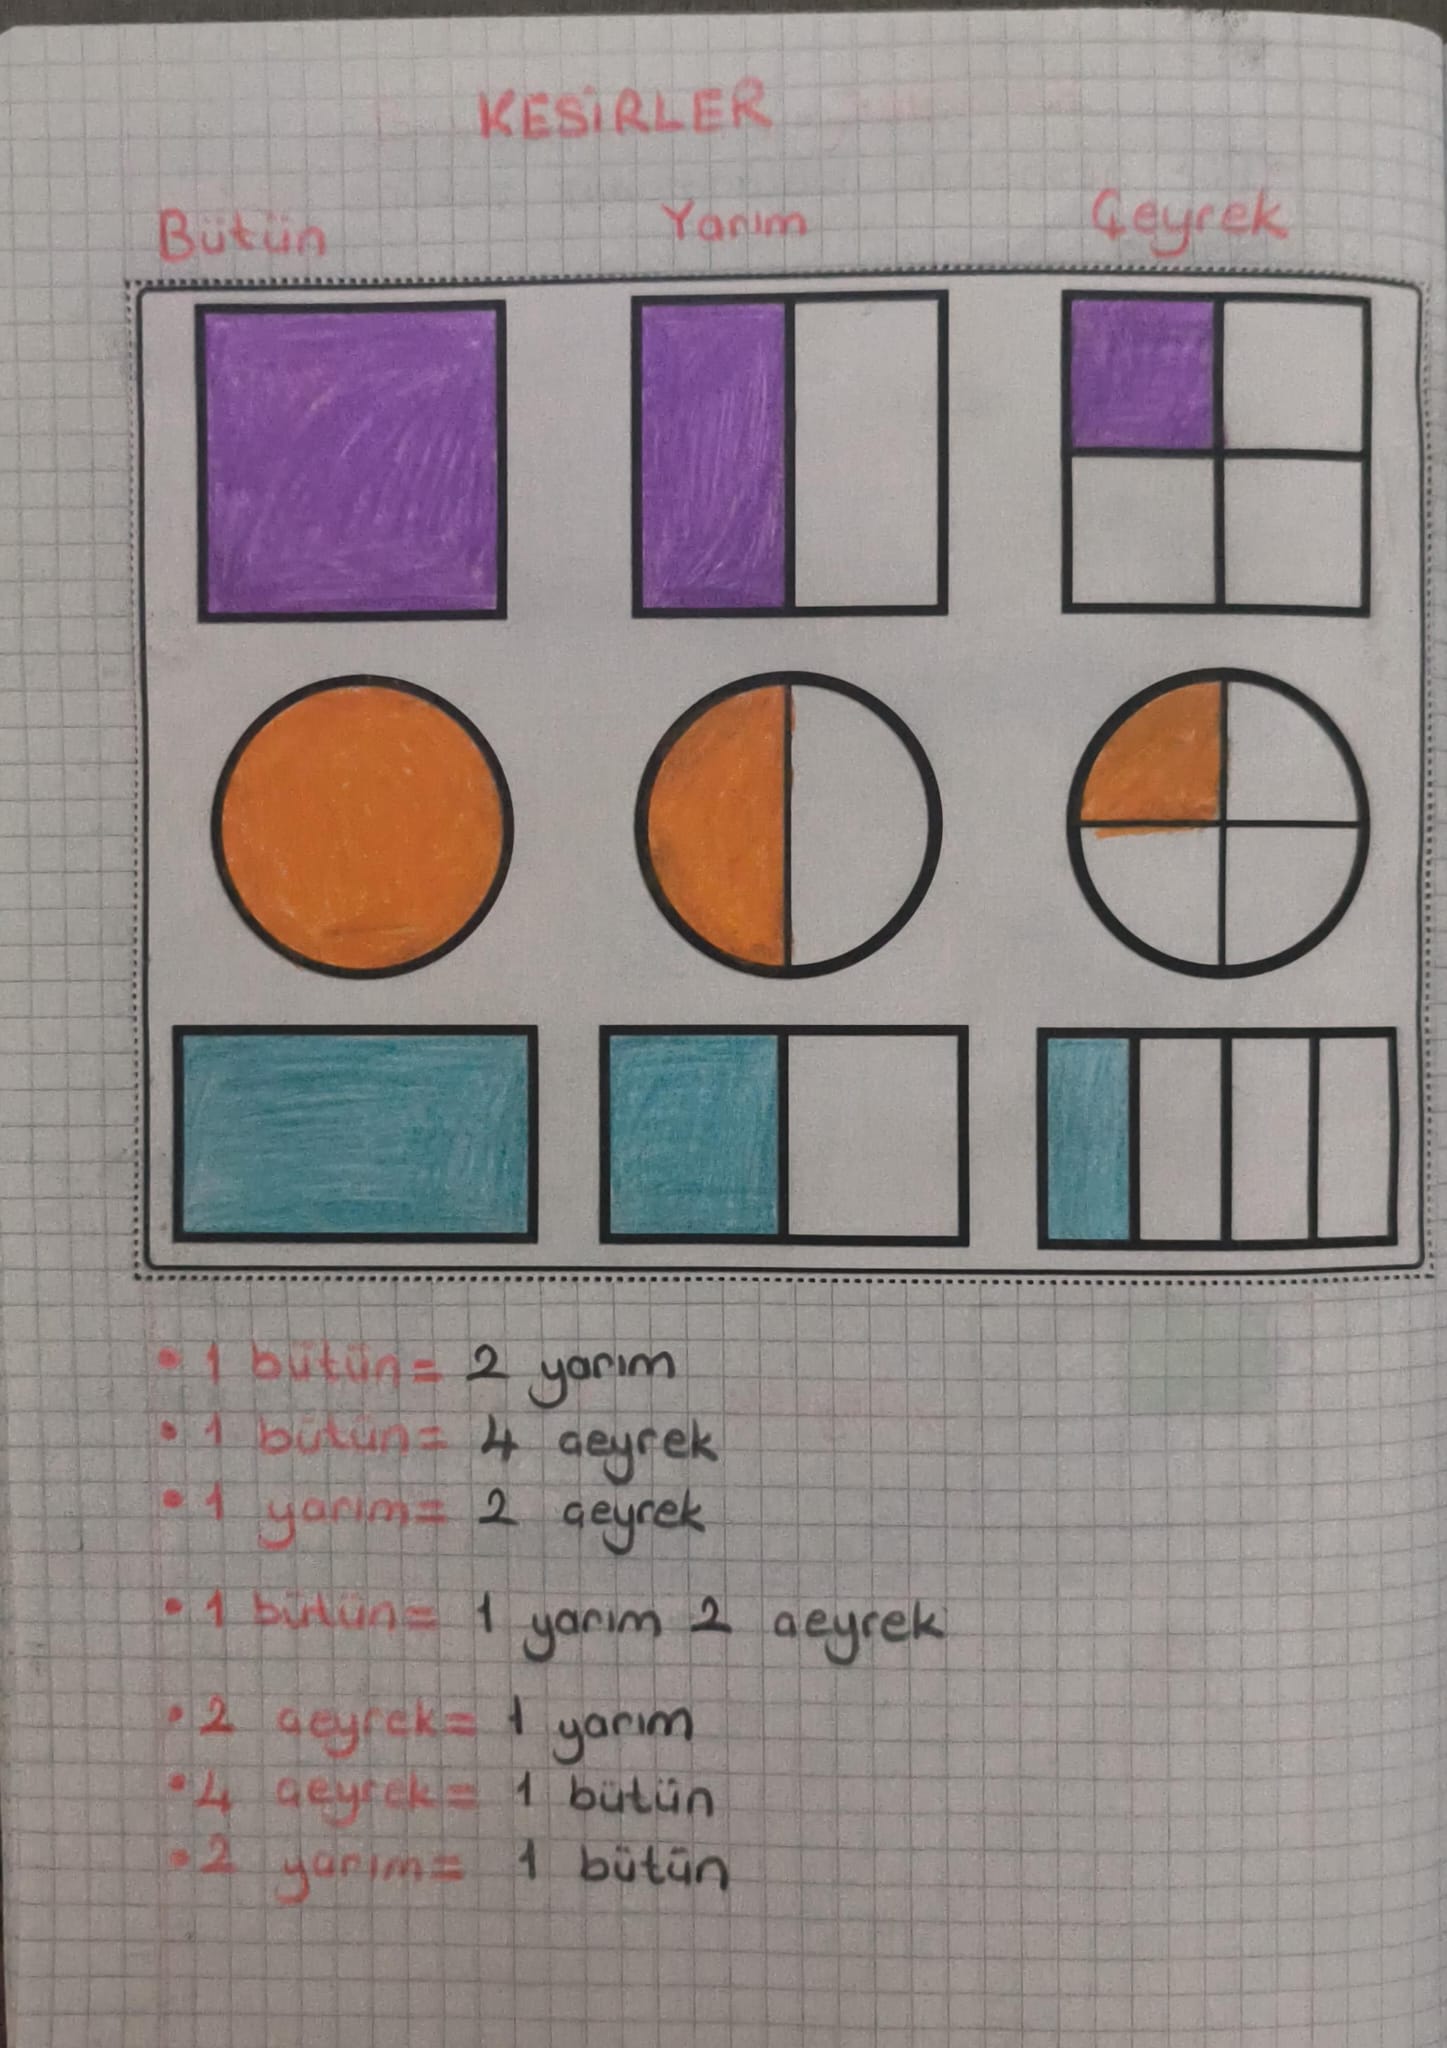 KESİRLER
Bütün Yarım Çeyrek
• 1 bütün = 2 yarım
• 1 bütün = 4 çeyrek
• 1 yarım = 2 çeyrek
• 1 bütün = 1 yarım 2 çeyrek
• 2 çeyrek = 1 yarım
• 4 çeyrek = 1 bütün
• 2 yarım = 1 bütün